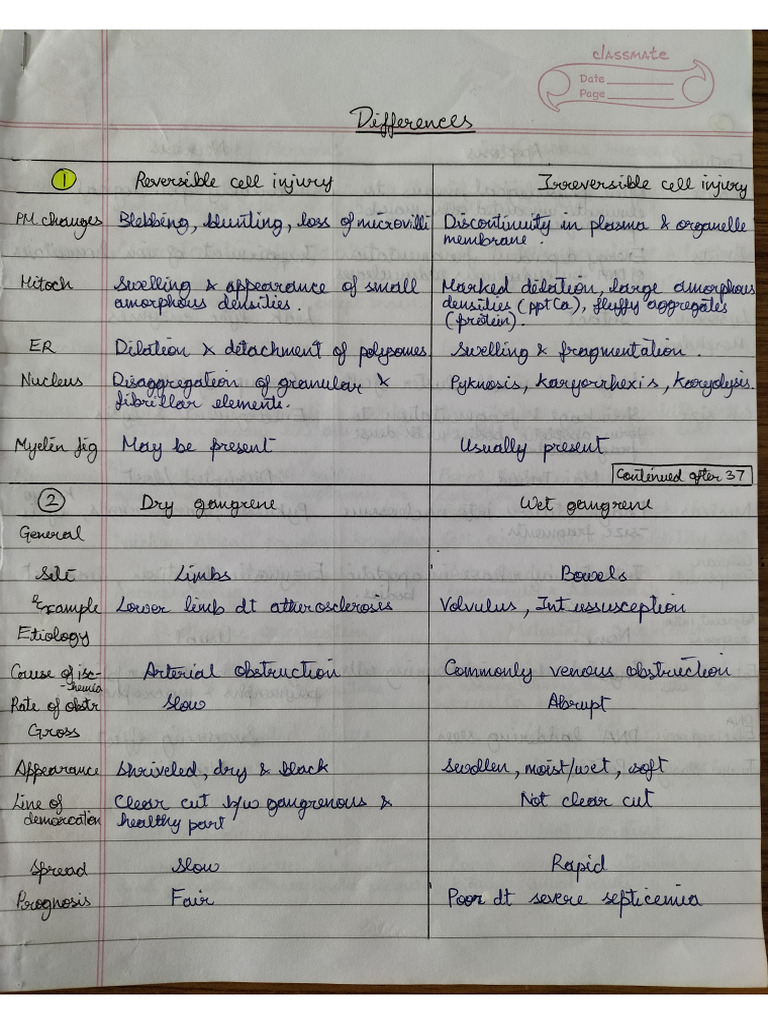 classmate
Date
Page
Differences
1 Reversible cell injury Irreversible cell injury
PM changes Blebbing, blunting, loss of microvilli Discontinuity in plasma & organelle
membrane.
Mitoch Swelling & appearance of small Marked dilation, large amorphous
amorphous densities. densities (ppt Ca), fluffy aggregates
(protein).
ER Dilation & detachment of polysomes Swelling & fragmentation.
Nucleus Disaggregation of granular & Pyknosis, karyorrhexis, karyolysis.
fibrillar elements.
Myelin fig May be present Usually present
Continued after 37
2 Dry gangrene Wet gangrene
General
Site Limbs Bowels
Example Lower limb dt atherosclerosis Volvulus, Intussusception
Etiology
Cause of isc- Arterial obstruction Commonly venous obstruction
-themia
Rate of obstr Slow Abrupt
Gross
Appearance Shriveled, dry & black Swollen, moist/wet, soft
Line of Clear cut b/w gangrenous & Not clear cut
demarcation healthy part
Spread Slow Rapid
Prognosis Fair Poor dt severe septicemia